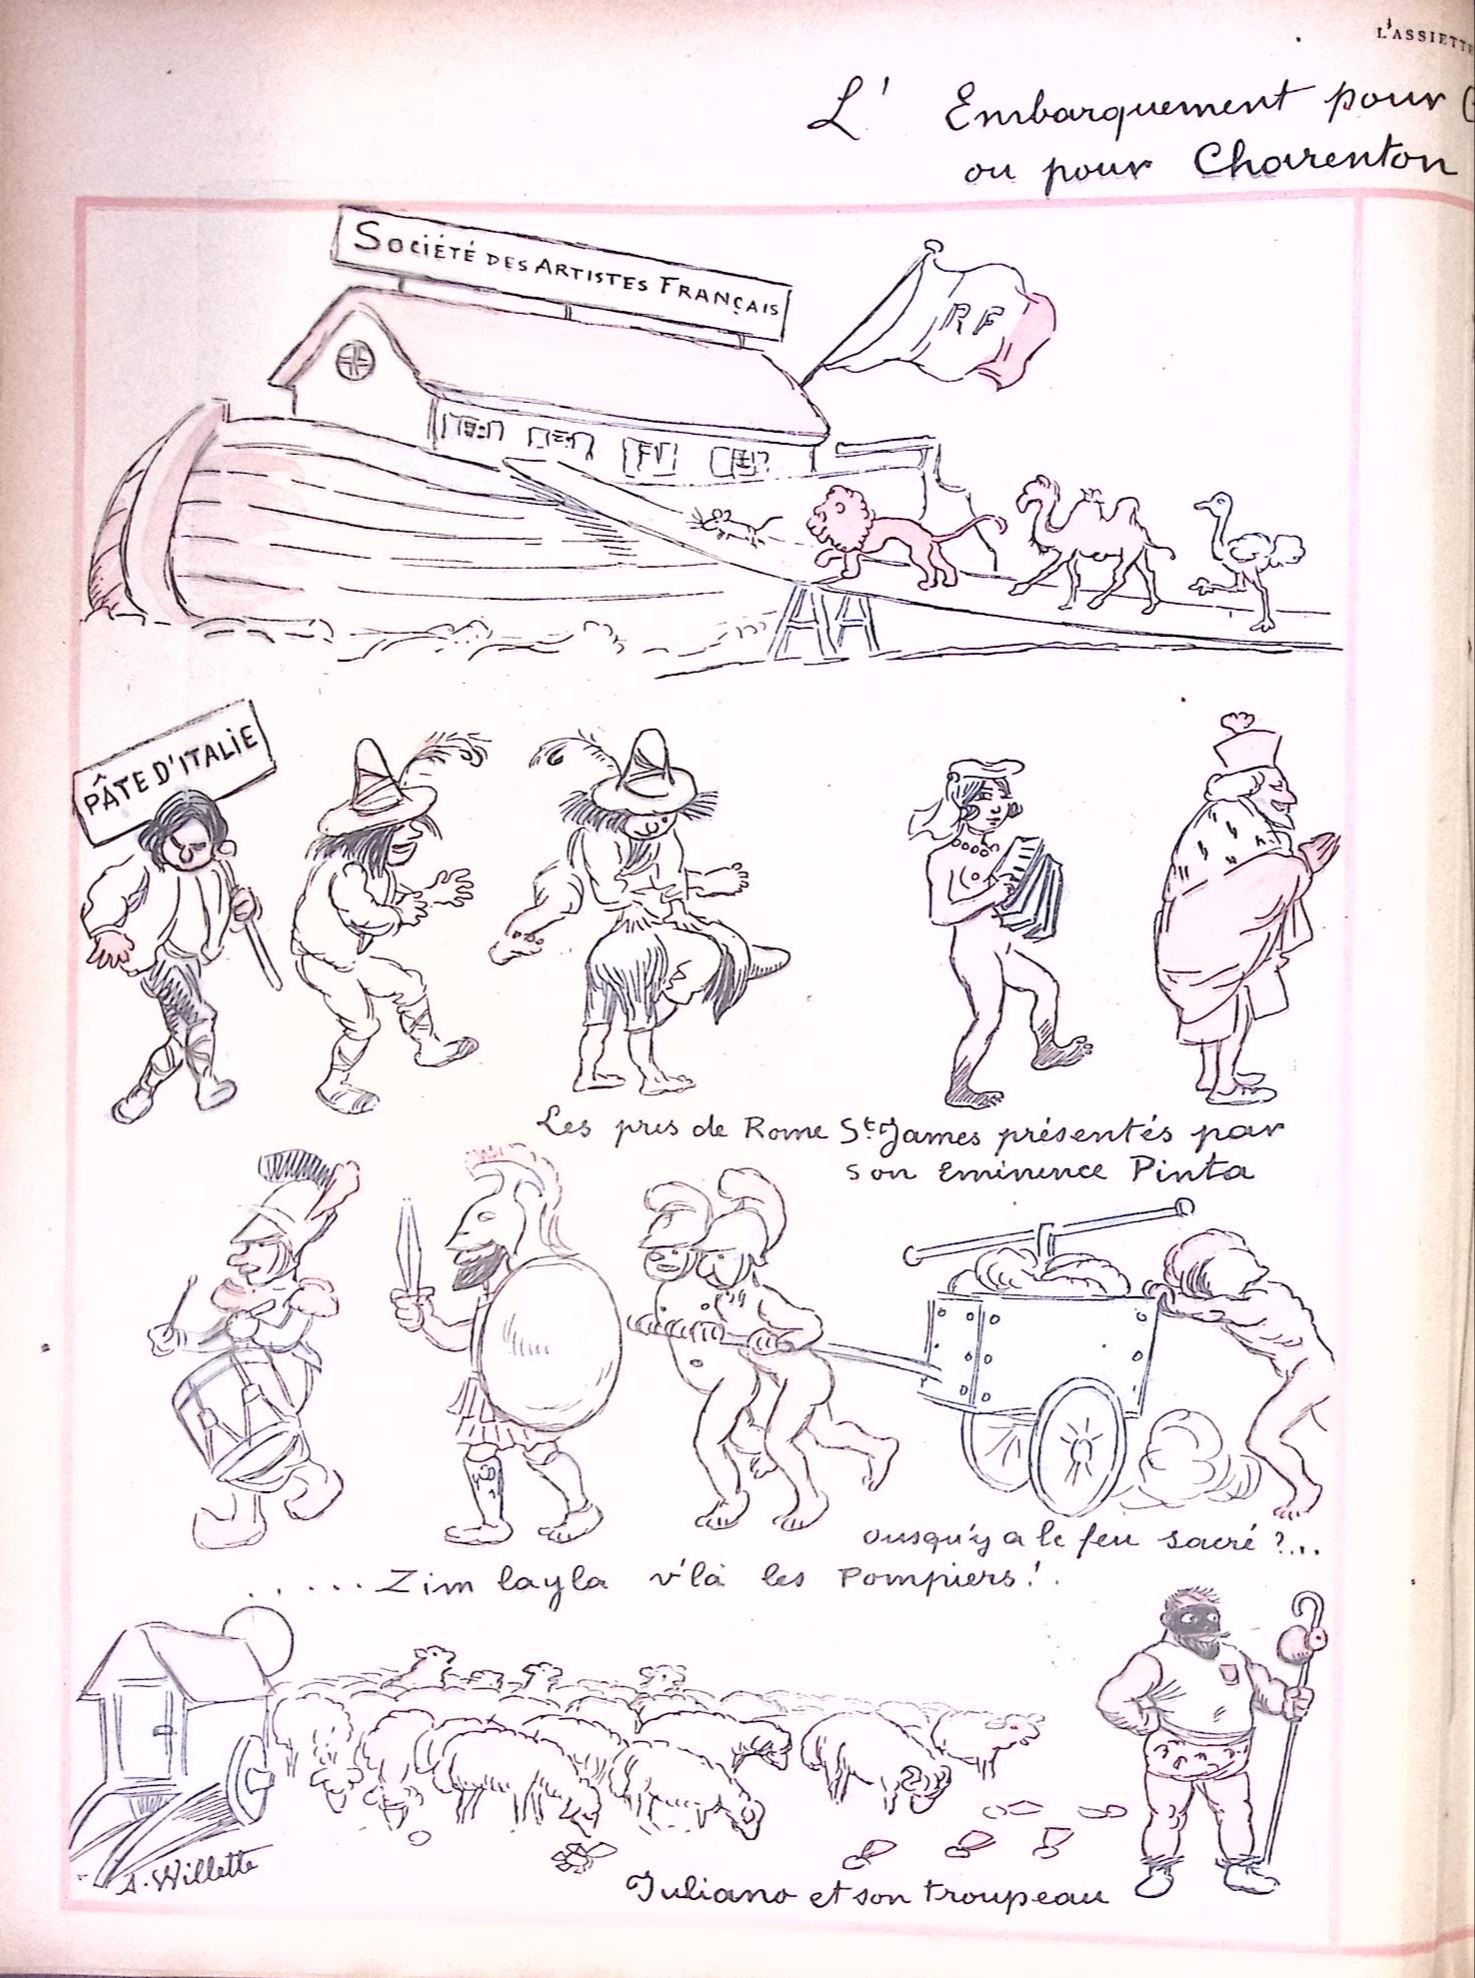 L'ASSIETTE
L' Embarquement pour
ou pour Charenton
SOCIÉTÉ DES ARTISTES FRANÇAIS
RF
PÂTE D'ITALIE
Les prix de Rome St James présentés par
son Eminence Pinta
Ousqu'y a le feu sacré ?...
..... Zim layla v'là les Pompiers !
A. Willette
Juliano et son troupeau